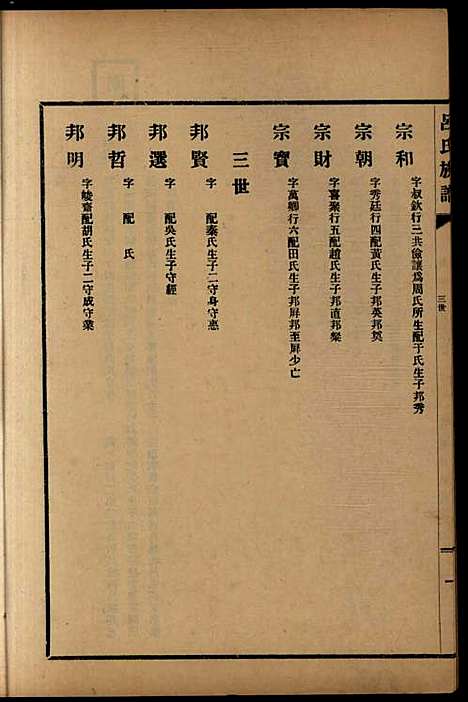 呂氏族譜
三世
一
宗和 字叔欽行三共儉讓爲周氏所生配于氏生子邦秀
宗朝 字秀廷行四配黃氏生子邦英邦奠
宗財 字喜聚行五配趙氏生子邦直邦傑
宗寶 字萬鄉行六配田氏生子邦屏邦至屏少亡
三世
邦賢 字 配秦氏生子二守身守惠
邦選 字 配吳氏生子守經
邦哲 字 配 氏
邦明 字峻齋配胡氏生子二守成守業